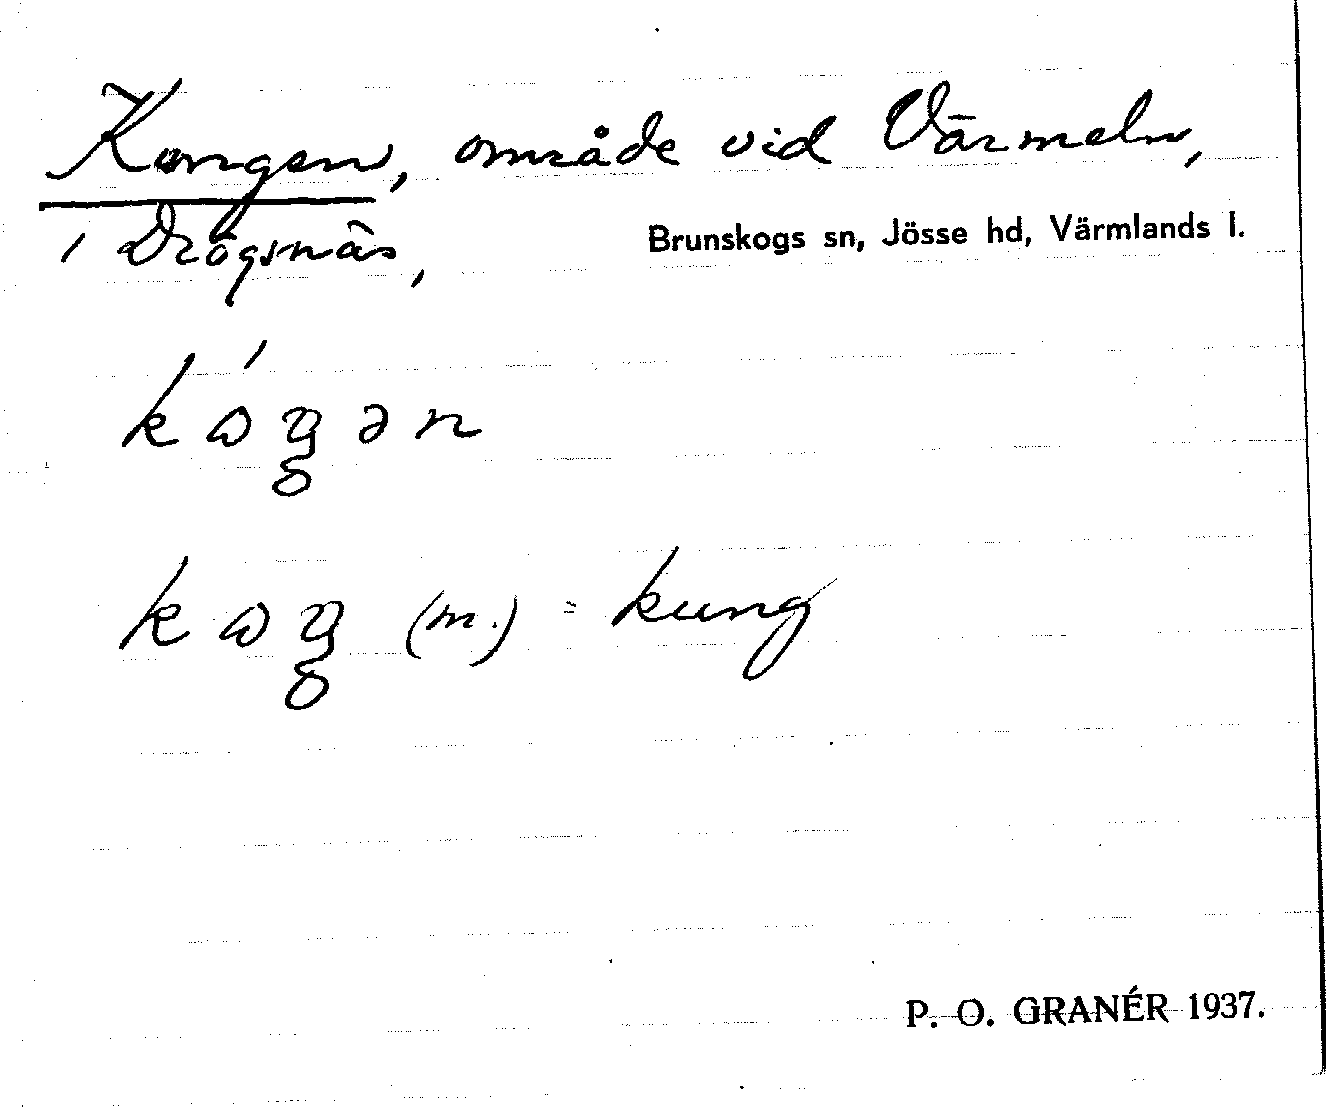 Kongen, område vid Värmeln,
i Drögsnäs,
Brunskogs sn, Jösse hd, Värmlands l.
(m.) = kung
P. O. GRANÉR 1937.